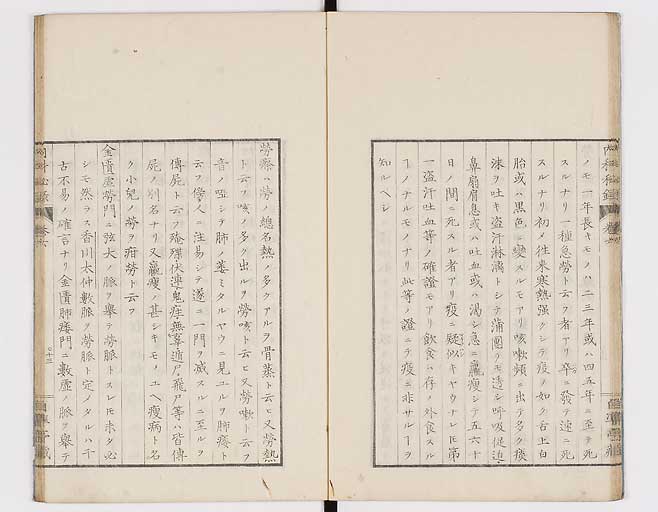 ノモ一年長キモノハ二三年或ハ四五年ニ至テ死
スルナリ一種急勞ト云フ者アリ卒ニ發テ速ニ死
スルナリ初メ徃来寒熱强クシテ疫ノ如ク舌上白
胎或ハ黒色ニ變スルモアリ咳嗽頻ニ出テ多ク痰
沫ヲ吐キ盗汗淋漓トシテ蒲團ヲモ透シ呼吸促迫
鼻扇肩息或ハ吐血或ハ渇シ急ニ羸瘦シテ五六十
日ノ間ニ死スル者アリ疫ニ疑似キヤウナレ𪜈第
一盗汗吐血等ノ確證モアリ飲食ハ存ノ外食スル
ヿノナルモノナリ此等ノ證ニテ疫ニ非サルヿヲ
知ルヘシ
勞瘵ハ勞ノ總名熱ノ多クアルヲ骨蒸ト云ヒ又勞熱
ト云フ咳ノ多ク出ルヲ勞咳ト云ヒ又勞嗽ト云フ
音ノ啞シテ肺ノ萎ミタルヤウニ見エルヲ肺痿ト
云フ傍人ニ注易シテ遂ニ一門ヲ滅スルニ至ルヲ
傳屍ト云フ殗殜伏連鬼疰無辜遁尸飛尸等ハ皆傳
屍ノ別名ナリ又羸瘦ノ甚シキモノユヘ瘦病ト名
ク小兒ノ勞ヲ疳勞ト云フ
金匱虛勞門ニ弦大ノ脈ヲ擧テ勞脈トスレ𪜈未タ必
シモ然ラス香川太仲數脈ヲ勞脈ト定ノタルハ千
古不易ノ確言ナリ金匱肺痿門ニ數虛ノ脈ヲ擧テ